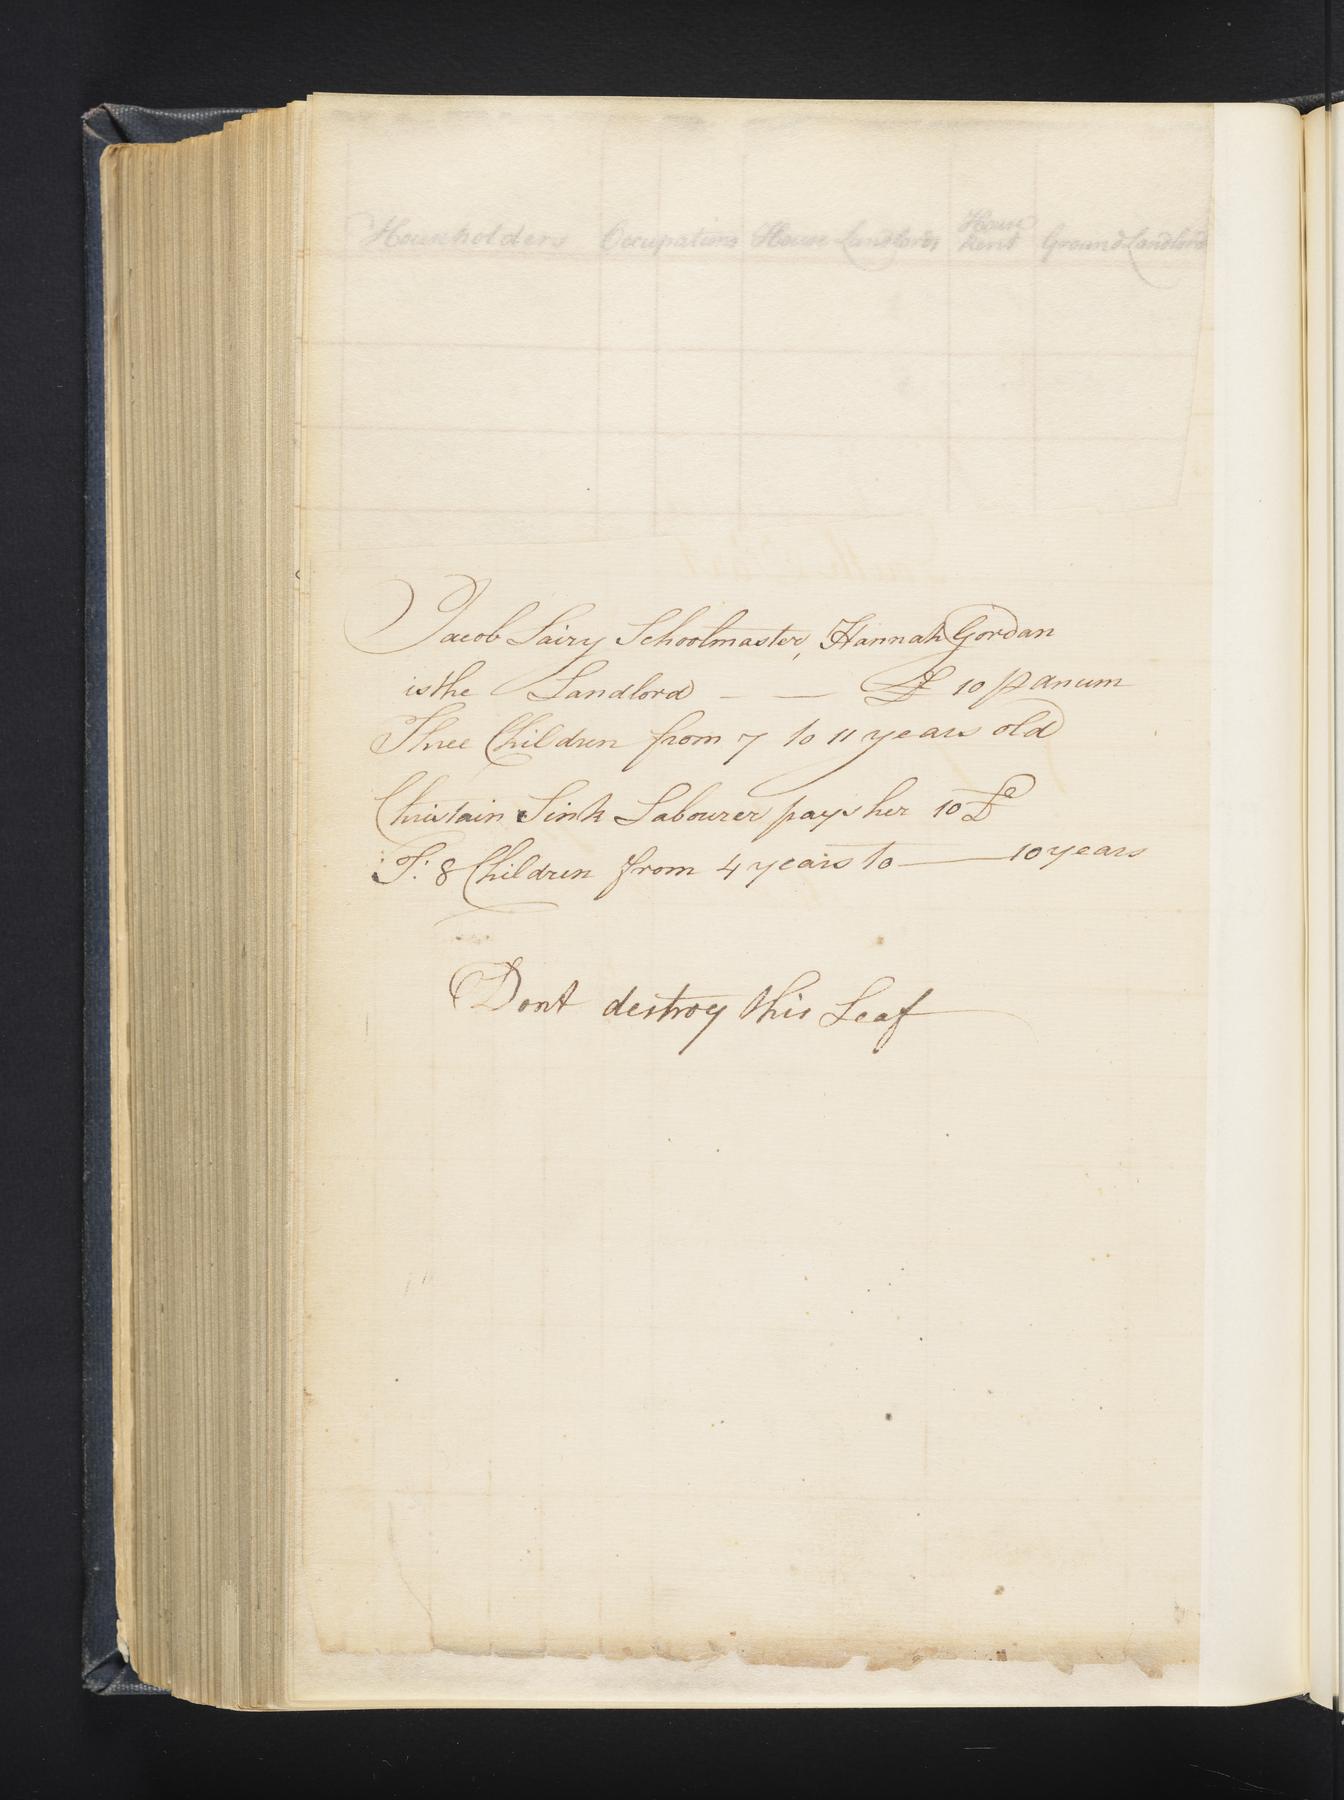 Householders Occupations House Landlords House Rent Ground Landlord
Jacob Lairy Schoolmaster, Hannah Gordan
is the Landlord - — £ 10 ⅌ anum
Three Children from 7 to 11 years old
Christain Sink Labourer pays her 10 £
T: 8 Children from 4 years to — 10 years
Dont destroy this Leaf